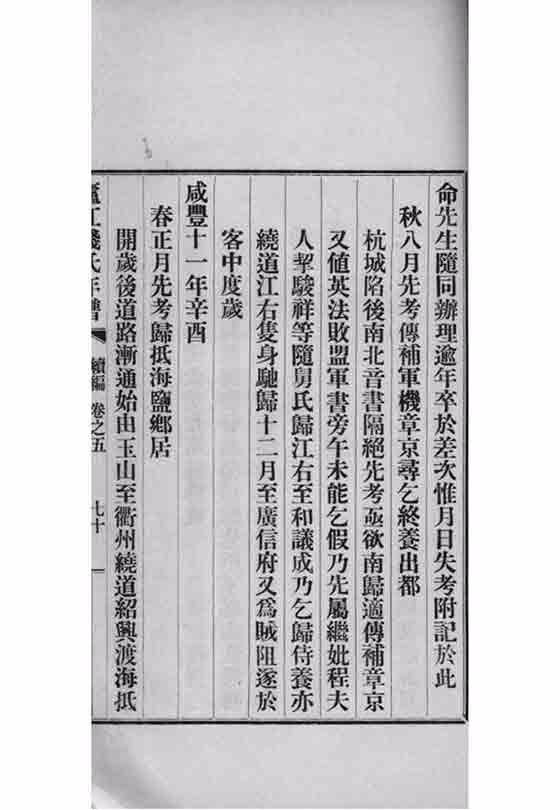 命先生隨同辦理逾年卒於差次惟月日失考附記於此
秋八月先考傳補軍機章京尋乞終養出都
杭城陷後南北音書隔絕先考亟欲南歸適傳補章京
又値英法敗盟軍書旁午未能乞假乃先屬繼妣程夫
人挈駿祥等隨舅氏歸江右至和議成乃乞歸侍養亦
繞道江右隻身馳歸十二月至廣信府又爲賊阻遂於
客中度歲
咸豐十一年辛酉
春正月先考歸抵海鹽鄉居
開歲後道路漸通始由玉山至衢州繞道紹興渡海抵
廬江錢氏年譜 續編 卷之五 七十